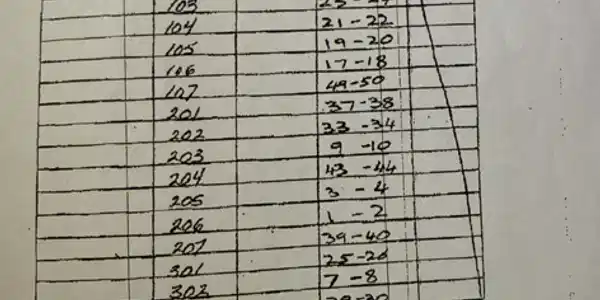 103 23-24
104 21-22
105 19-20
106 17-18
107 49-50
201 37-38
202 33-34
203 9-10
204 43-44
205 3-4
206 1-2
207 39-40
301 25-26
302 7-8
29-30